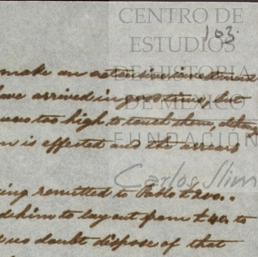 CENTRO DE
ESTUDIOS
DE HISTORIA
DE MÉXICO
FUNDACIÓN
Carlos Slim
103.
make an extensive investment
have arrived in
was too high to touch them
n is effected and the arrears
ing remitted to Pablo £200..
d him to lay out from £40 to
no doubt dispose of that